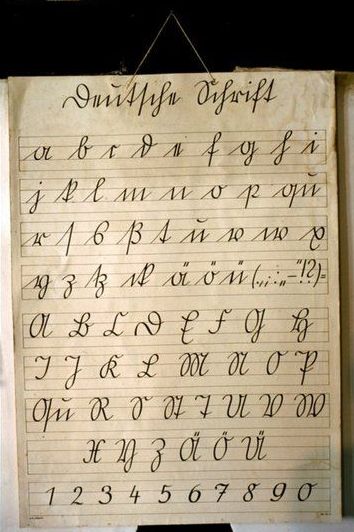 Deutsche Schrift
a b c d e f g h i
j k l m n o p qu
r ſ s ß t u v w x
y z tz ck ä ö ü (.,;:„-“!?)=
A B C D E F G H
I J K L M N O P
Qu R S St T U V W
X Y Z Ä Ö Ü
1 2 3 4 5 6 7 8 9 0